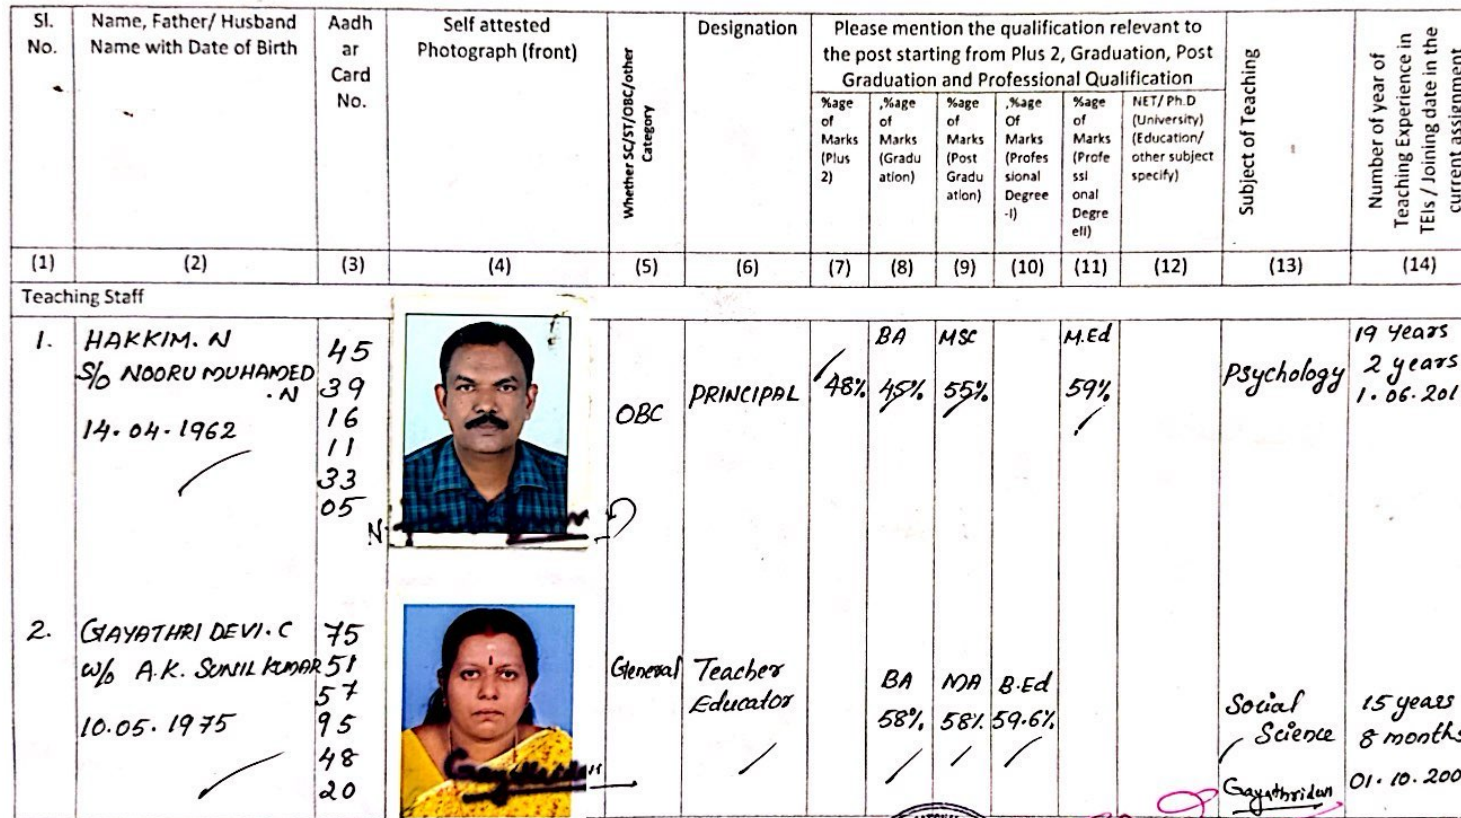 Sl. No.
Name, Father/ Husband Name with Date of Birth
Aadh ar Card No.
Self attested Photograph (front)
Whether SC/ST/OBC/other Category
Designation
Please mention the qualification relevant to
the post starting from Plus 2, Graduation, Post
Graduation and Professional Qualification
%age of Marks (Plus 2)
,%age of Marks (Gradu ation)
%age of Marks (Post Gradu ation)
,%age Of Marks (Profes sional Degree -I)
%age of Marks (Profe ssi onal Degre eII)
NET/ Ph.D (University) (Education/ other subject specify)
Subject of Teaching
Number of year of Teaching Experience in TEIs / Joining date in the current assignment
(1) (2) (3) (4) (5) (6) (7) (8) (9) (10) (11) (12) (13) (14)
Teaching Staff
1.
HAKKIM. N
S/o NOORU MUHAMED
.N
14.04.1962
45
39
16
11
33
05
N.
OBC
PRINCIPAL
48%
BA
45%
MSC
55%
M.Ed
59%
Psychology
19 years
2 years
1.06.201
2.
GAYATHRI DEVI. C
W/o A.K. SUNIL KUMAR
10.05.1975
75
51
57
95
48
20
General
Teacher
Educator
BA
58%
MA
58%
B.Ed
59.6%
Social
Science
15 years
8 months
01.10.200